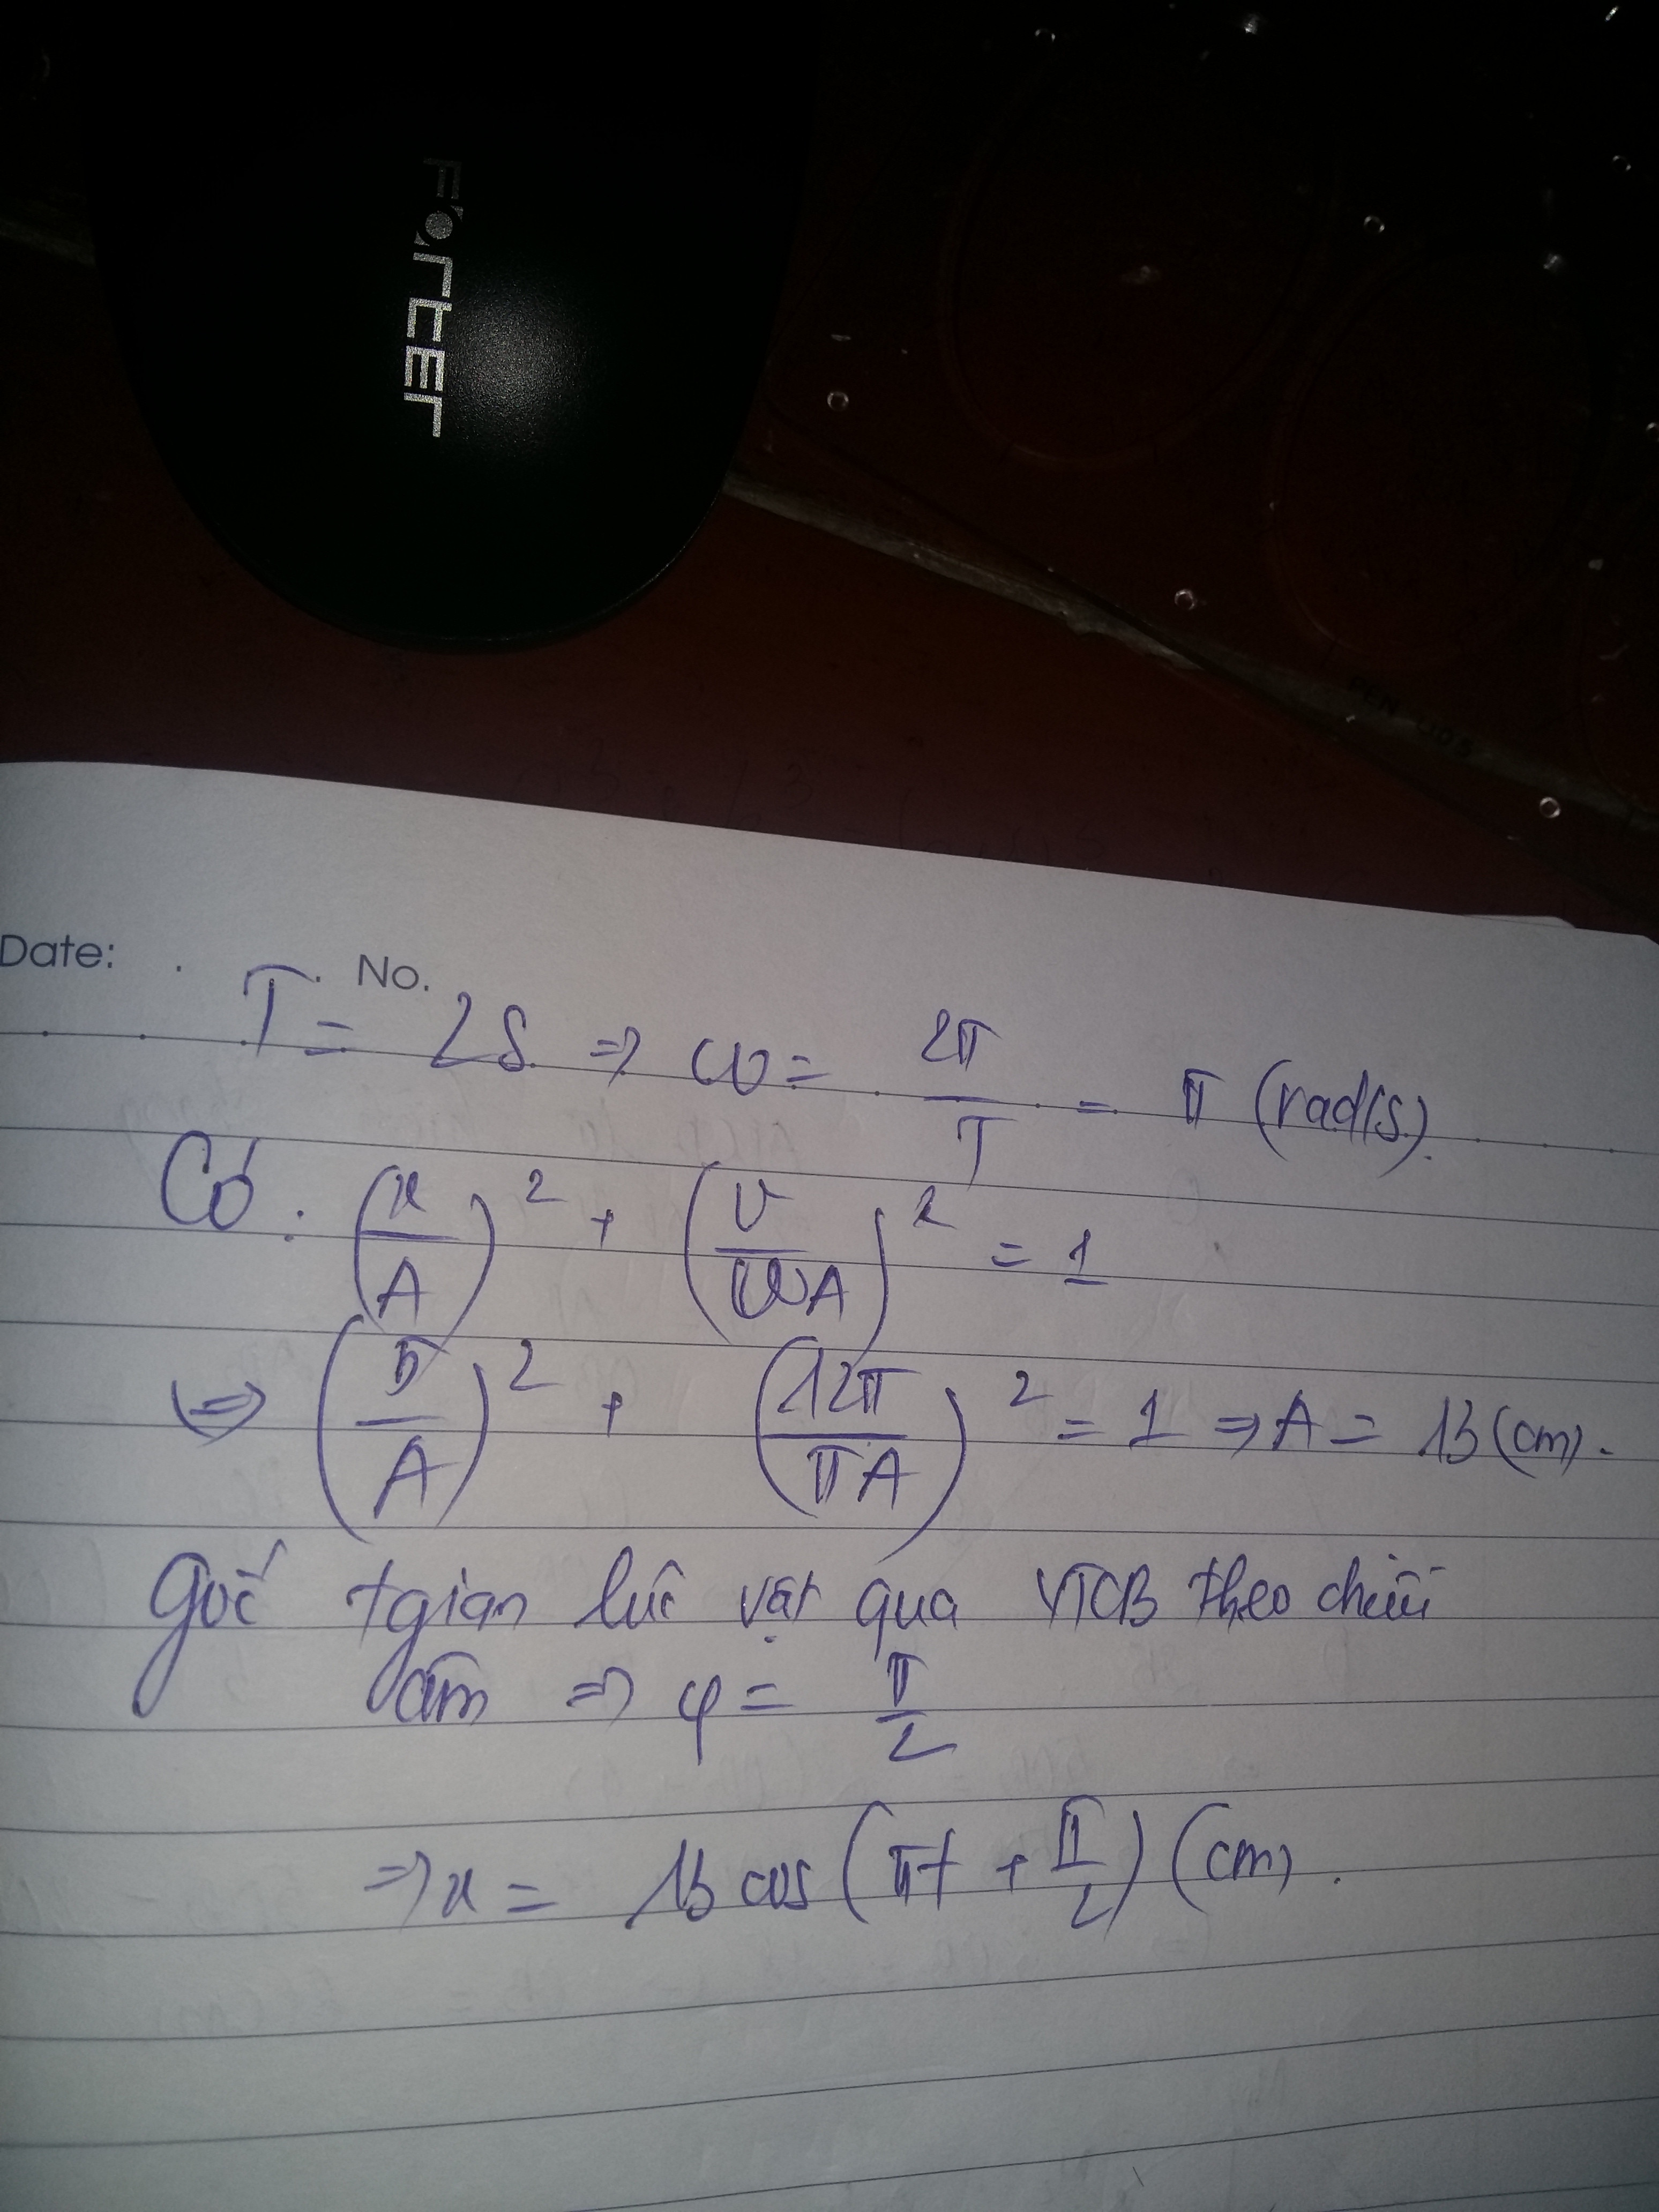 FORTER
Date: . . No.
T = 2s ⇒ ω = 2π/T = π (rad/s).
Có : (x/A)² + (v/ωA)² = 1
⇔ (5/A)² + (12π/πA)² = 1 ⇒ A = 13 (cm).
Gốc tgian lúc vật qua VTCB theo chiều
âm ⇒ φ = π/2
⇒ x = 13 cos (πt + π/2) (cm).